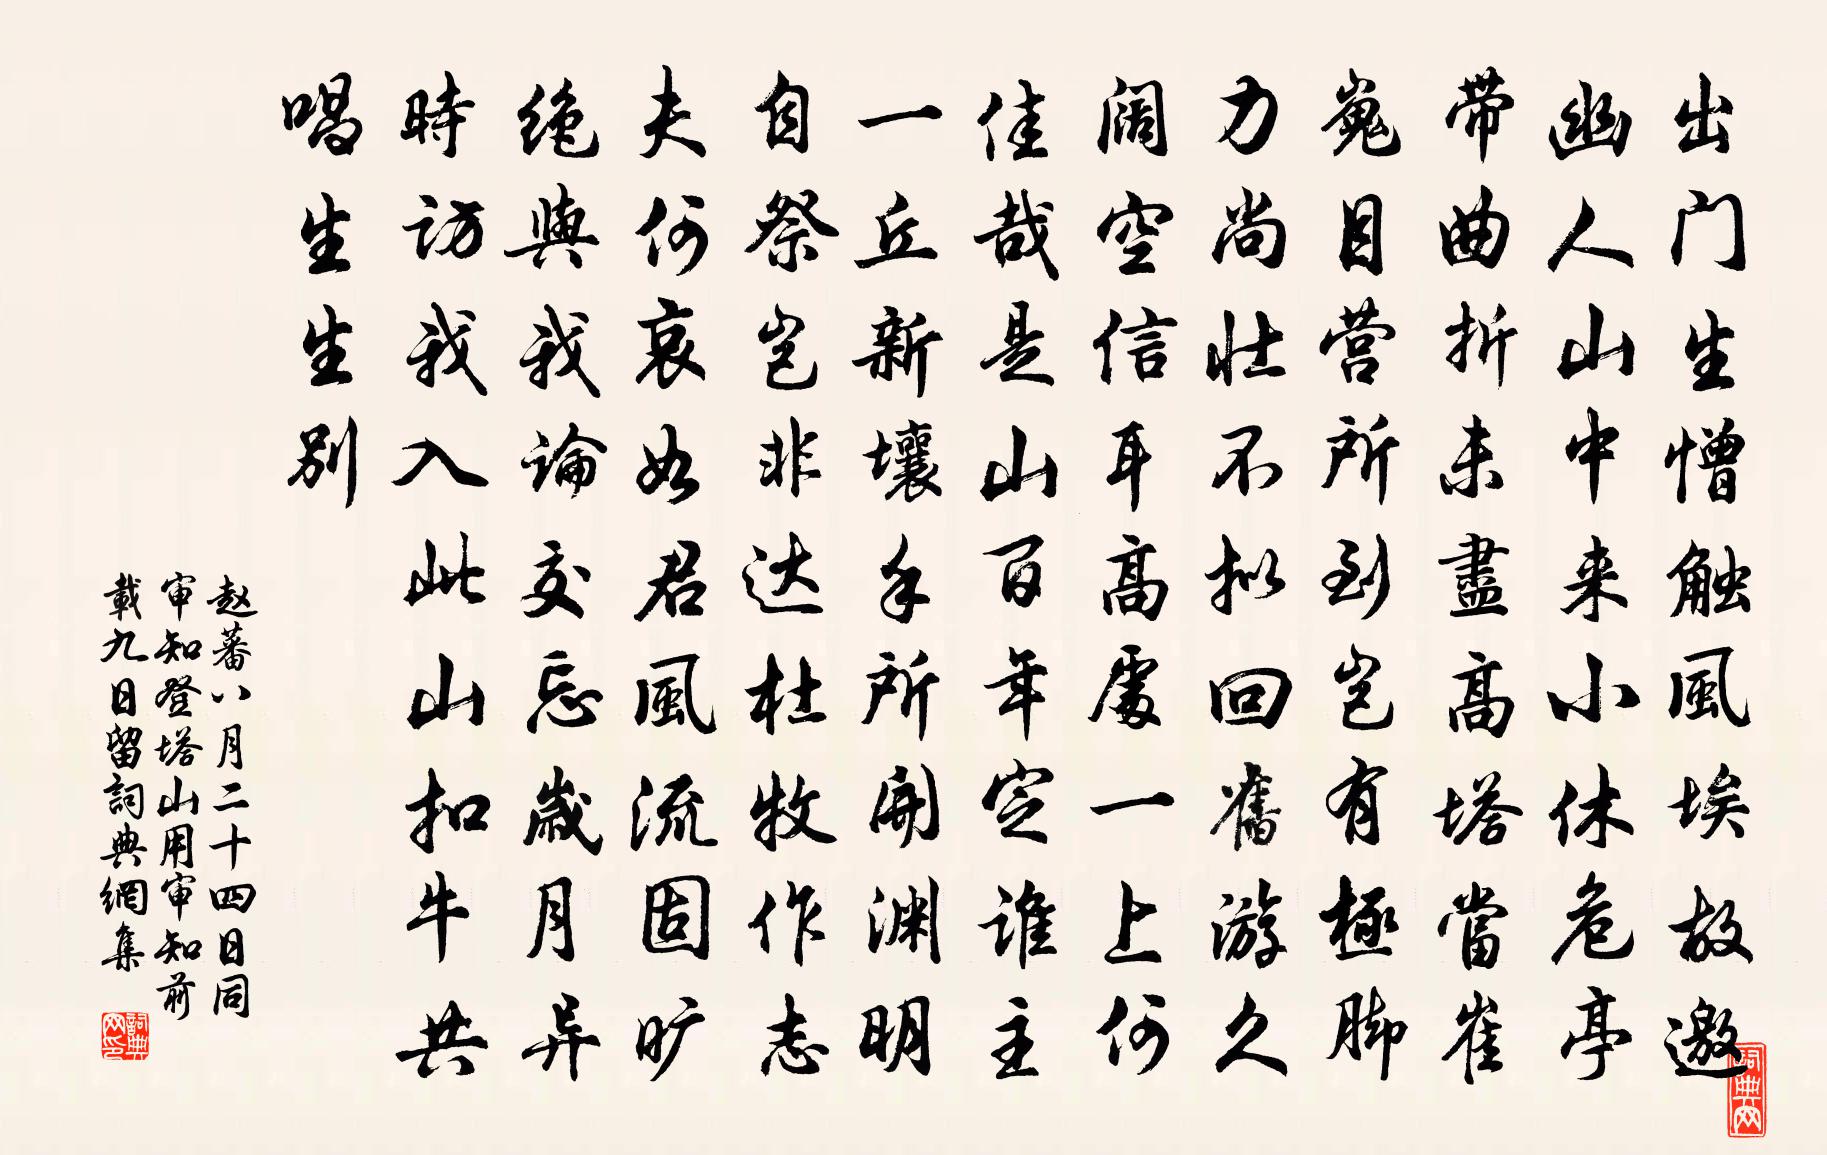 出门生憎触風埃故邀
幽人山中来小休危亭
带曲折未盡高塔當崔
嵬目营所到岂有極脚
力尚壮不拟回舊游久
阔空信耳高處一上何
佳哉是山百年定谁主
一丘新壤手所開渊明
自祭岂非达杜牧作志
夫何哀如君風流固旷
绝與我論交忘歲月异
時访我入此山扣牛共
唱生生别
赵蕃八月二十四日同
审知登塔山用审知前
載九日留詞典網集
詞典网印
詞典网